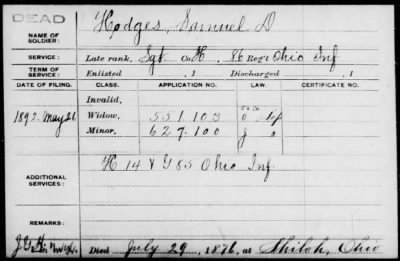 DEAD
NAME OF SOLDIER: Hodges, Samuel D
SERVICE: Late rank, Sgt Co. H, 86 Reg't Ohio Inf
TERM OF SERVICE: Enlisted , 1 Discharged , 1
DATE OF FILING. CLASS. APPLICATION NO. LAW. CERTIFICATE NO.
Invalid,
1892 May 21 Widow, 551.103 O
Minor, 627.100 g O
ADDITIONAL SERVICES: K 14 & G 85 Ohio Inf
REMARKS:
Died July 29, 1876, at Shiloh, Ohio